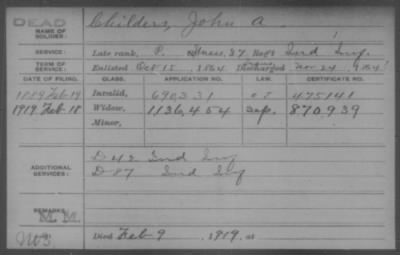 DEAD
NAME OF SOLDIER: Childers, John A.
SERVICE: Late rank, P. 87 Reg't Ind Inf.
TERM OF SERVICE: Enlisted Oct 15, 1864 Discharged Nov 24 1864
DATE OF FILING. CLASS. APPLICATION NO. LAW. CERTIFICATE NO.
Feb 19 Invalid, 690331 475141
1919 Feb 18 Widow, 1136,454 870,939
Minor,
ADDITIONAL SERVICES: D 42 Ind Inf
D 87 Ind Inf
REMARKS: M. M.
Died Feb 9, 1919, at